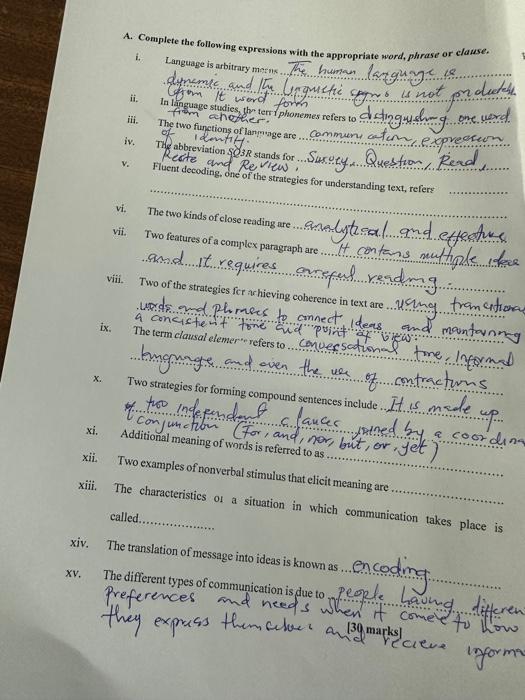 A. Complete the following expressions with the appropriate word, phrase or clause.
i. Language is arbitrary means The human language is
dynamic and the linguistic signs is not
from It word form
ii. In language studies, the term phonemes refers to distinguishing one word
from another.
iii. The two functions of language are communication, expression
of identity.
iv. The abbreviation SQ3R stands for Survey, Question, Read,
Recite and Review,
v. Fluent decoding, one of the strategies for understanding text, refers
vi. The two kinds of close reading are analytical and effective
vii. Two features of a complex paragraph are It contans multiple idea
and it requires careful reading.
viii. Two of the strategies for achieving coherence in text are using
words and phrases to connect Ideas and
a concistent tone and point of view
ix. The term clausal element refers to conversational tone, Informal
language and even the use of contractions
x. Two strategies for forming compound sentences include It is made up
of two independent clauses joined by a
conjunction (For, and, nor, but, or, yet)
xi. Additional meaning of words is referred to as
xii. Two examples of nonverbal stimulus that elicit meaning are
xiii. The characteristics of a situation in which communication takes place is
called
xiv. The translation of message into ideas is known as encoding
xv. The different types of communication is due to people having differen
Preferences and needs when it comes to how
they express themselves and recieve
[30 marks]